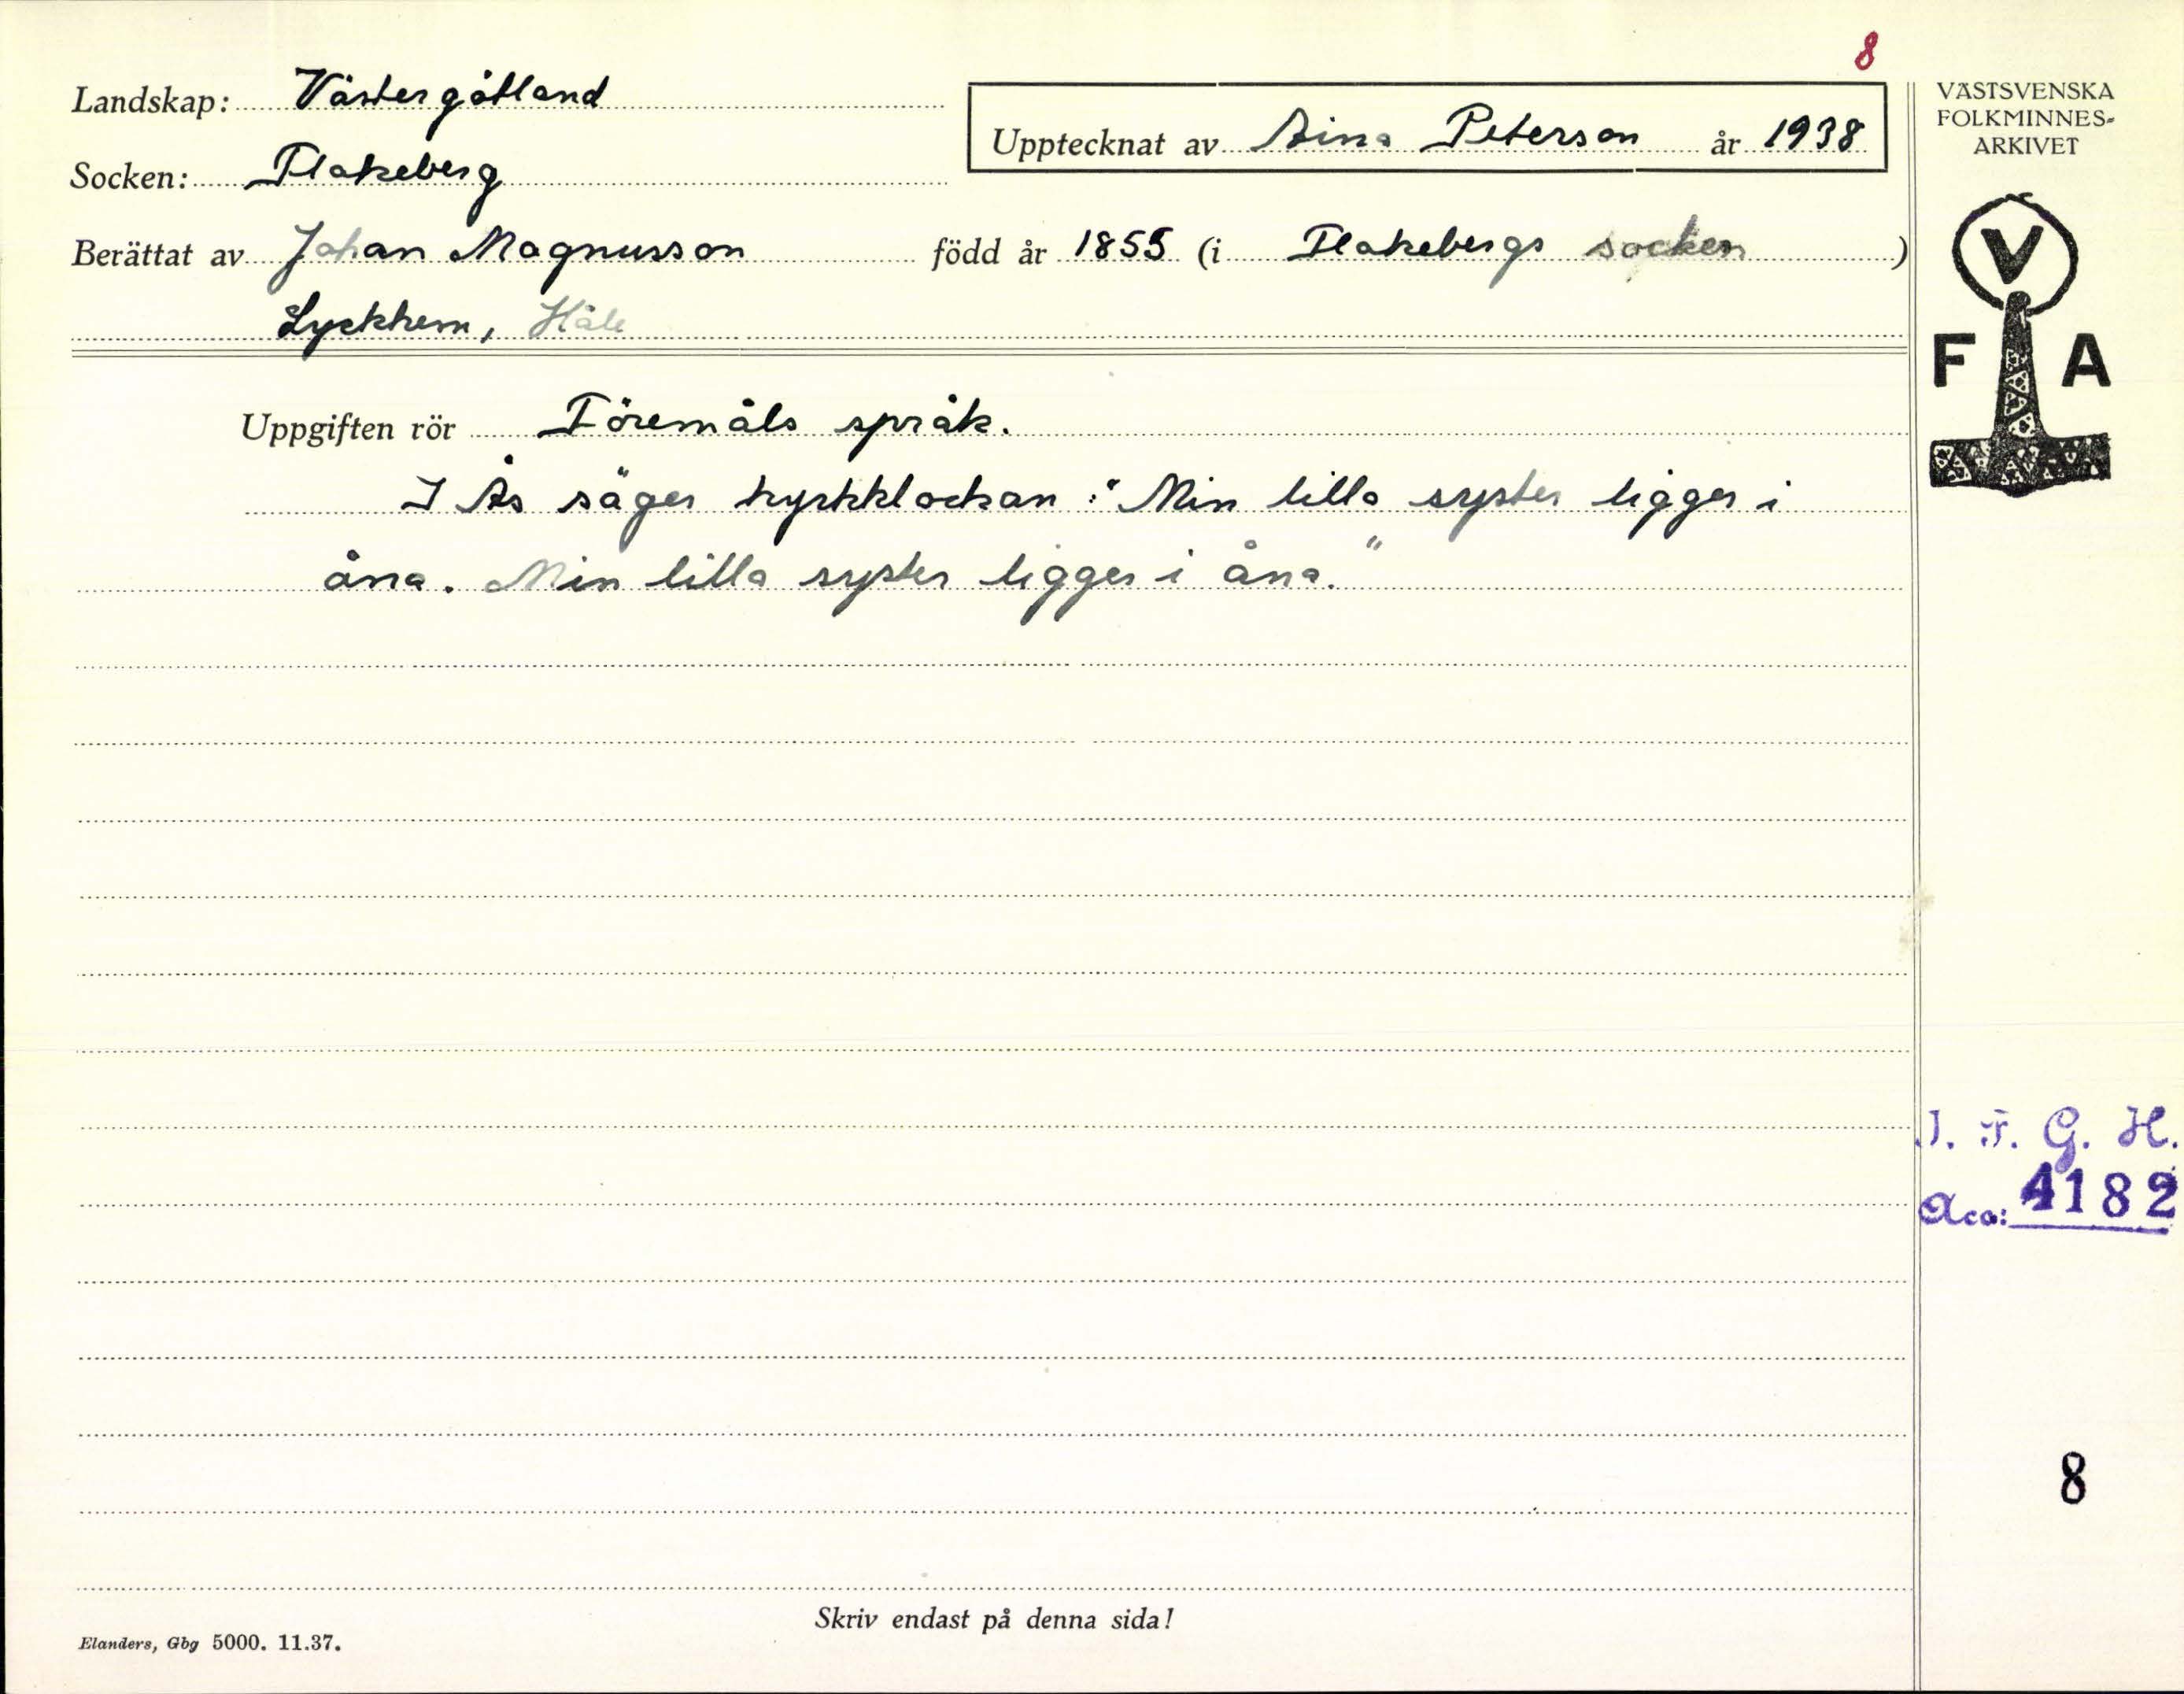 8
Landskap: Västergötland
Upptecknat av Aina Peterson år 1938
Socken: Flakeberg
Berättat av Johan Magnusson född år 1855 (i Flakebergs socken)
Lyckhem, Häle
Uppgiften rör Föremåls språk.
I Ås säger kyrkklockan: "Min lilla syster ligger i
åna. Min lilla syster ligger i åna."
Skriv endast på denna sida!
Elanders, Gbg 5000. 11.37.
VÄSTSVENSKA
FOLKMINNES-
ARKIVET
V
F A
I. F. G. H.
Acc: 4182
8